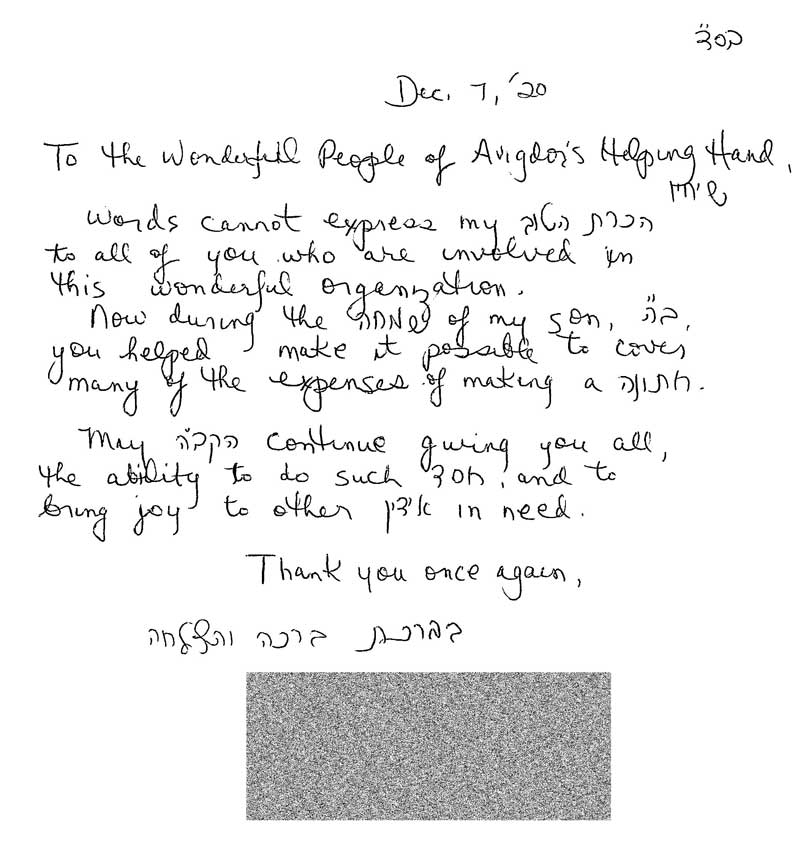 בס"ד
Dec. 7, '20
To the Wonderful People of Avigdor's Helping Hand,
שיחיו
Words cannot express my הכרת הטוב
to all of you who are involved in
this wonderful organization.
Now during the שמחה of my son, ב"ה,
you helped make it possible to cover
many of the expenses of making a חתונה.
May הקב"ה continue giving you all,
the ability to do such חסד, and to
bring joy to other אידן in need.
Thank you once again,
ברכה והצלחה